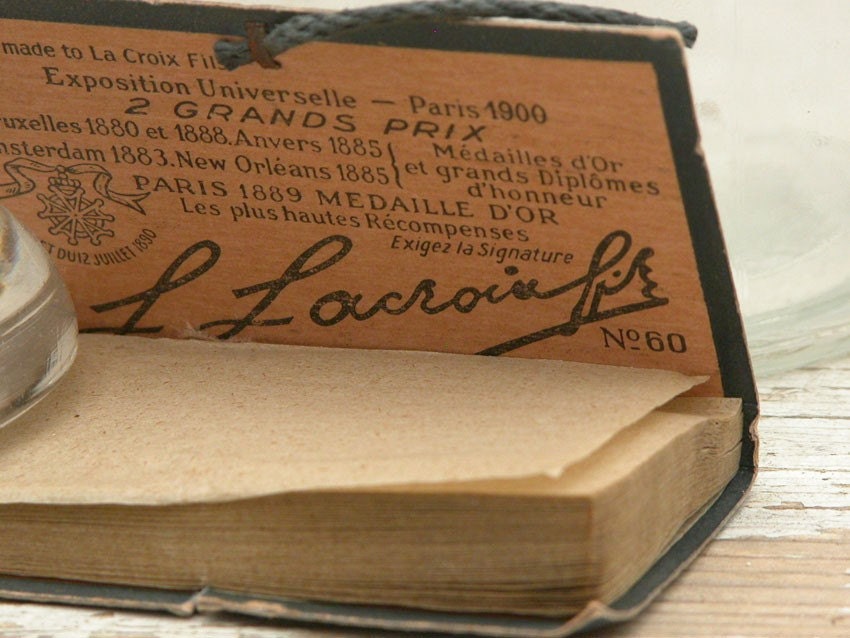 made to La Croix Fils
Exposition Universelle — Paris 1900
2 GRANDS PRIX
ruxelles 1880 et 1888. Anvers 1885
msterdam 1883. New Orléans 1885
Médailles d'Or
et grands Diplômes
d'honneur
PARIS 1889 MEDAILLE D'OR
Les plus hautes Récompenses
Exigez la Signature
DU 12 JUILLET 1890
L Lacroix Fils
Nº 60